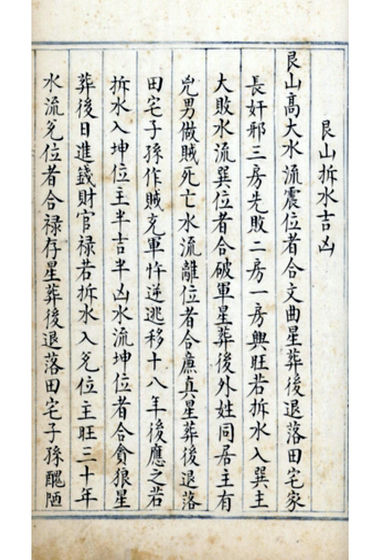 艮山拆水吉凶
艮山高大水流震位者合文曲星葬後退落田宅家
長奸邪三房先敗二房一房興旺若拆水入巽主
大敗水流巽位者合破軍星葬後外姓同居主有
兇男做賊死亡水流離位者合廉真星葬後退落
田宅子孫作賊充軍忤逆逃移十八年後應之若
拆水入坤位主半吉半凶水流坤位者合貪狼星
葬後日進錢財官祿若拆水入兌位主旺三十年
水流兌位者合祿存星葬後退落田宅子孫醜陋